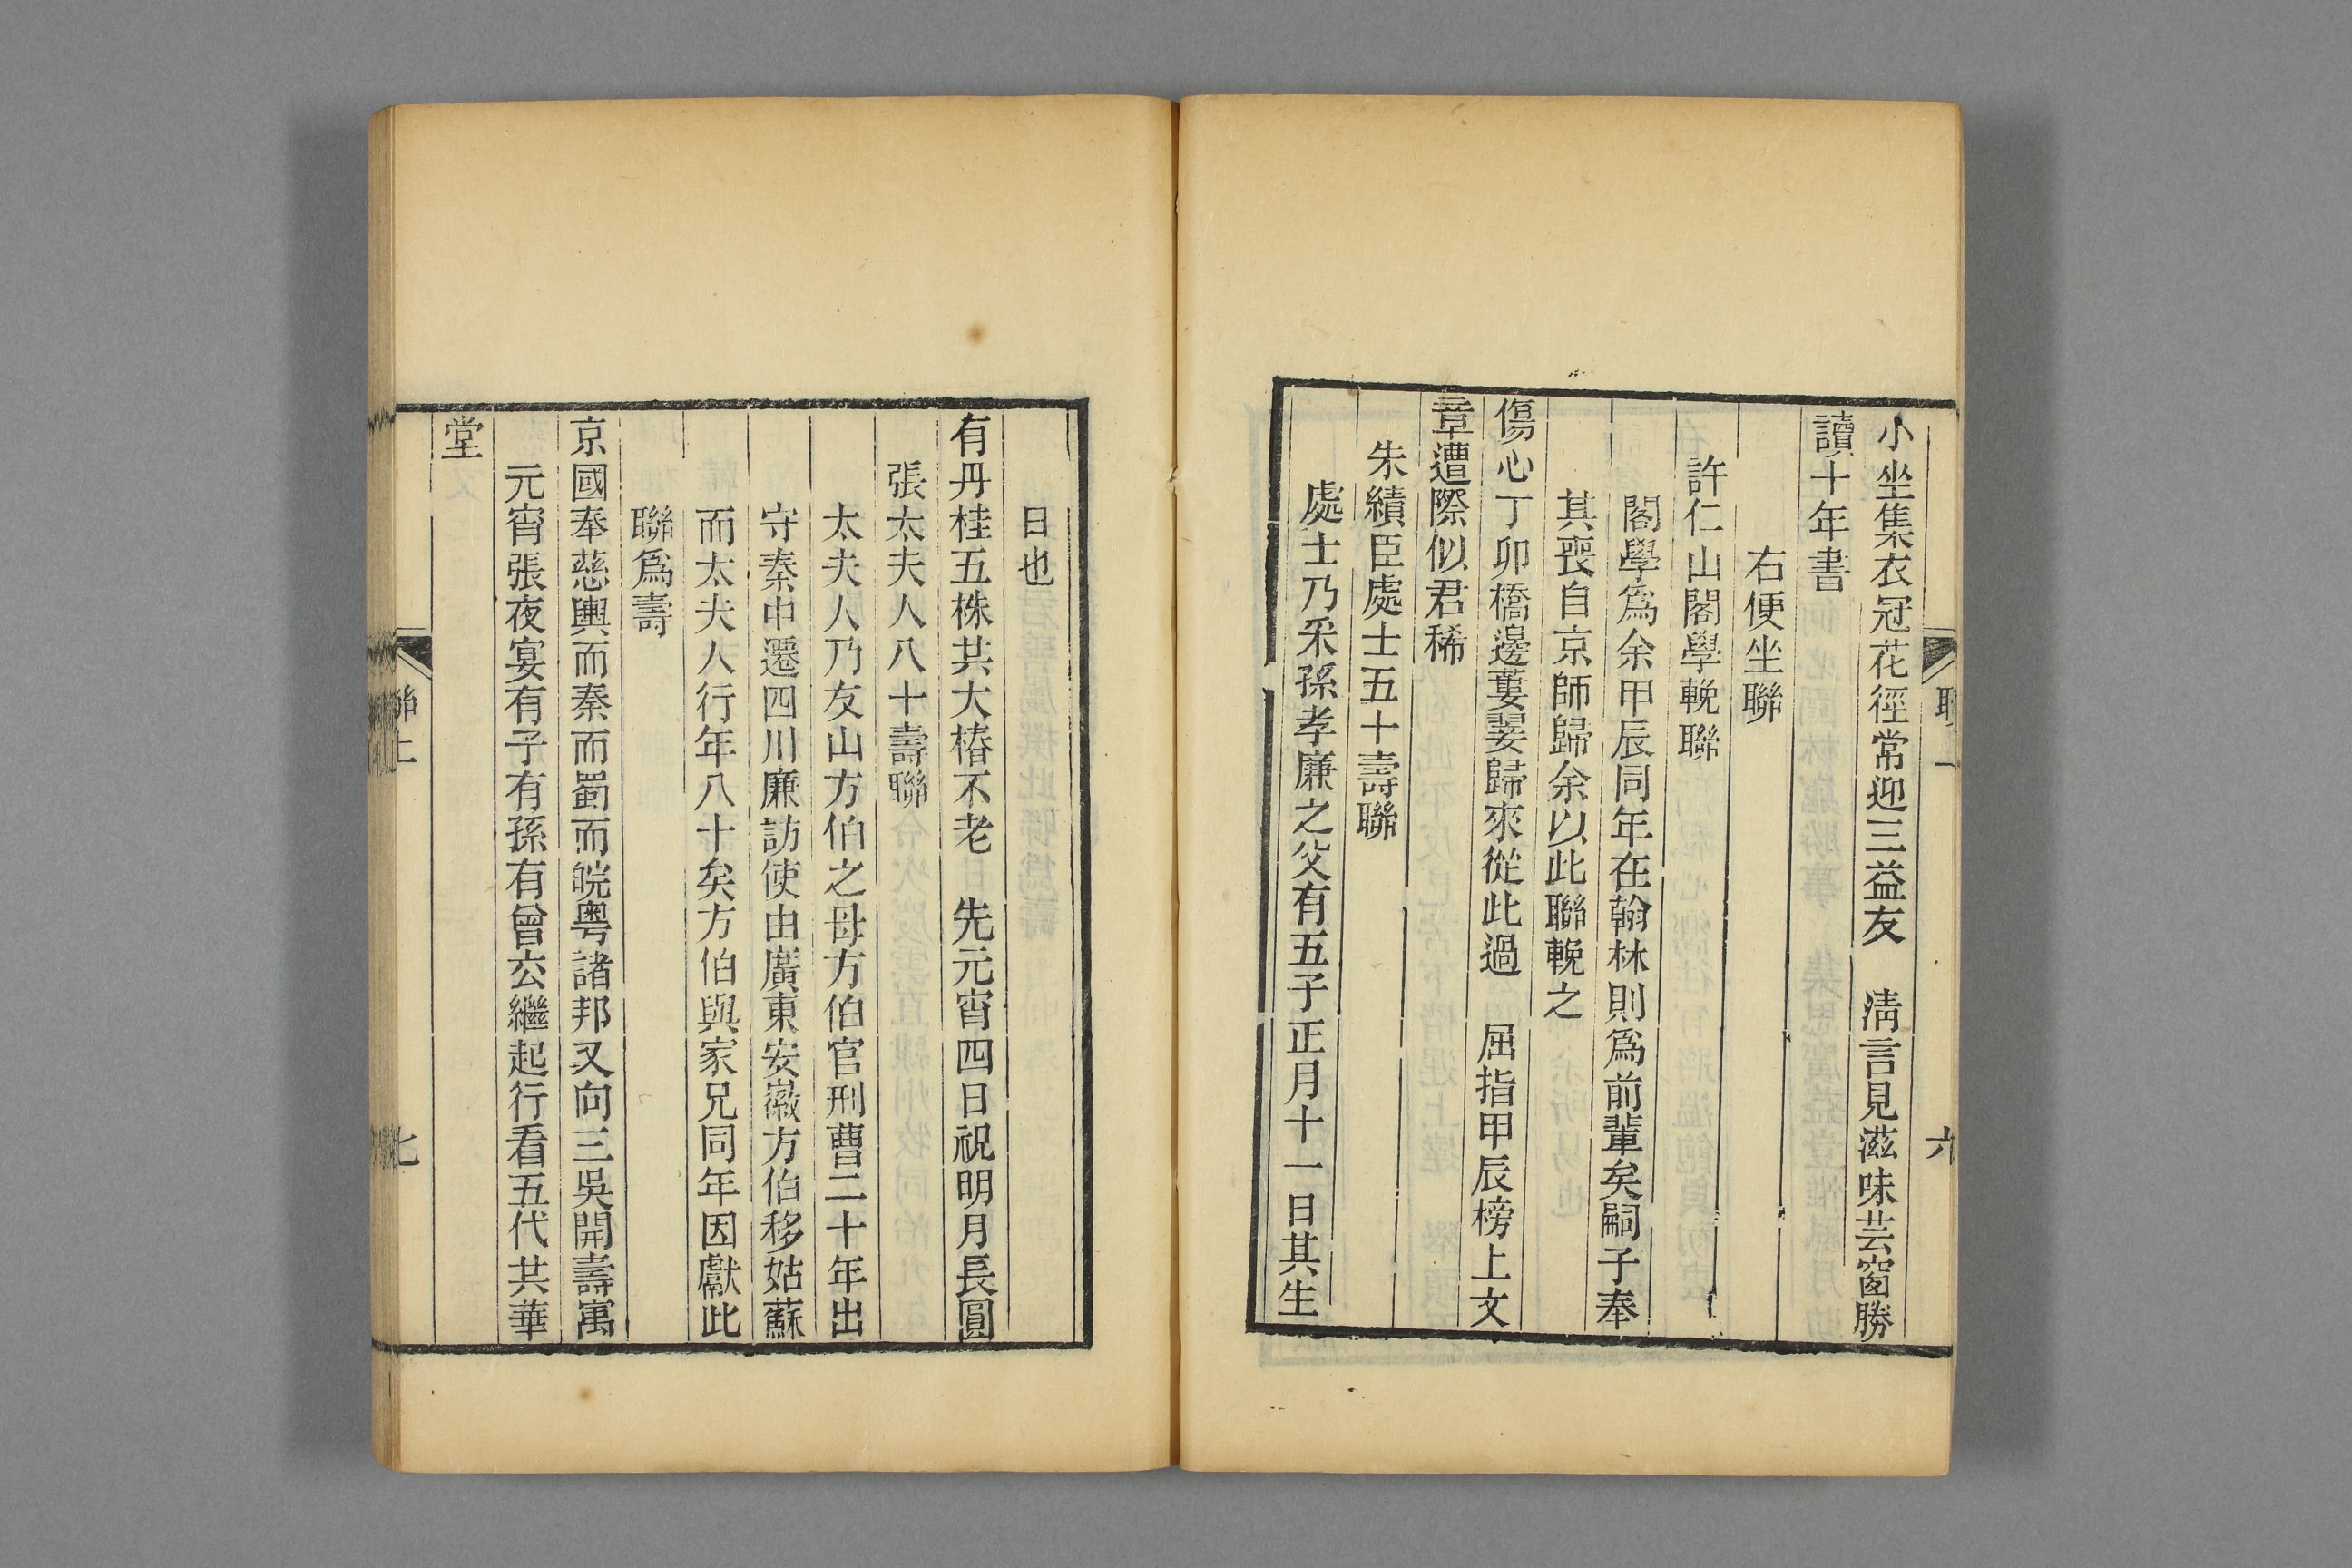 小坐集衣冠花徑常迎三益友　淸言見滋味芸窗勝
讀十年書
右便坐聯
許仁山閣學輓聯
閣學爲余甲辰同年在翰林則爲前輩矣嗣子奉
其喪自京師歸余以此聯輓之
傷心丁卯橋邊蔞翣歸來從此過　屈指甲辰榜上文
章遭際似君稀
朱績臣處士五十壽聯
處士乃釆孫孝廉之父有五子正月十一日其生
六
日也
有丹桂五株共大椿不老　先元宵四日祝明月長圓
張太夫人八十壽聯
太夫人乃友山方伯之母方伯官刑曹二十年出
守秦中遷四川廉訪使由廣東安徽方伯移姑蘇
而太夫人行年八十矣方伯與家兄同年因獻此
聯爲壽
京國奉慈輿而秦而蜀而皖粤諸邦又向三吳開壽寓
元宵張夜宴有子有孫有曾厺繼起行看五代共華
堂
聯上
七